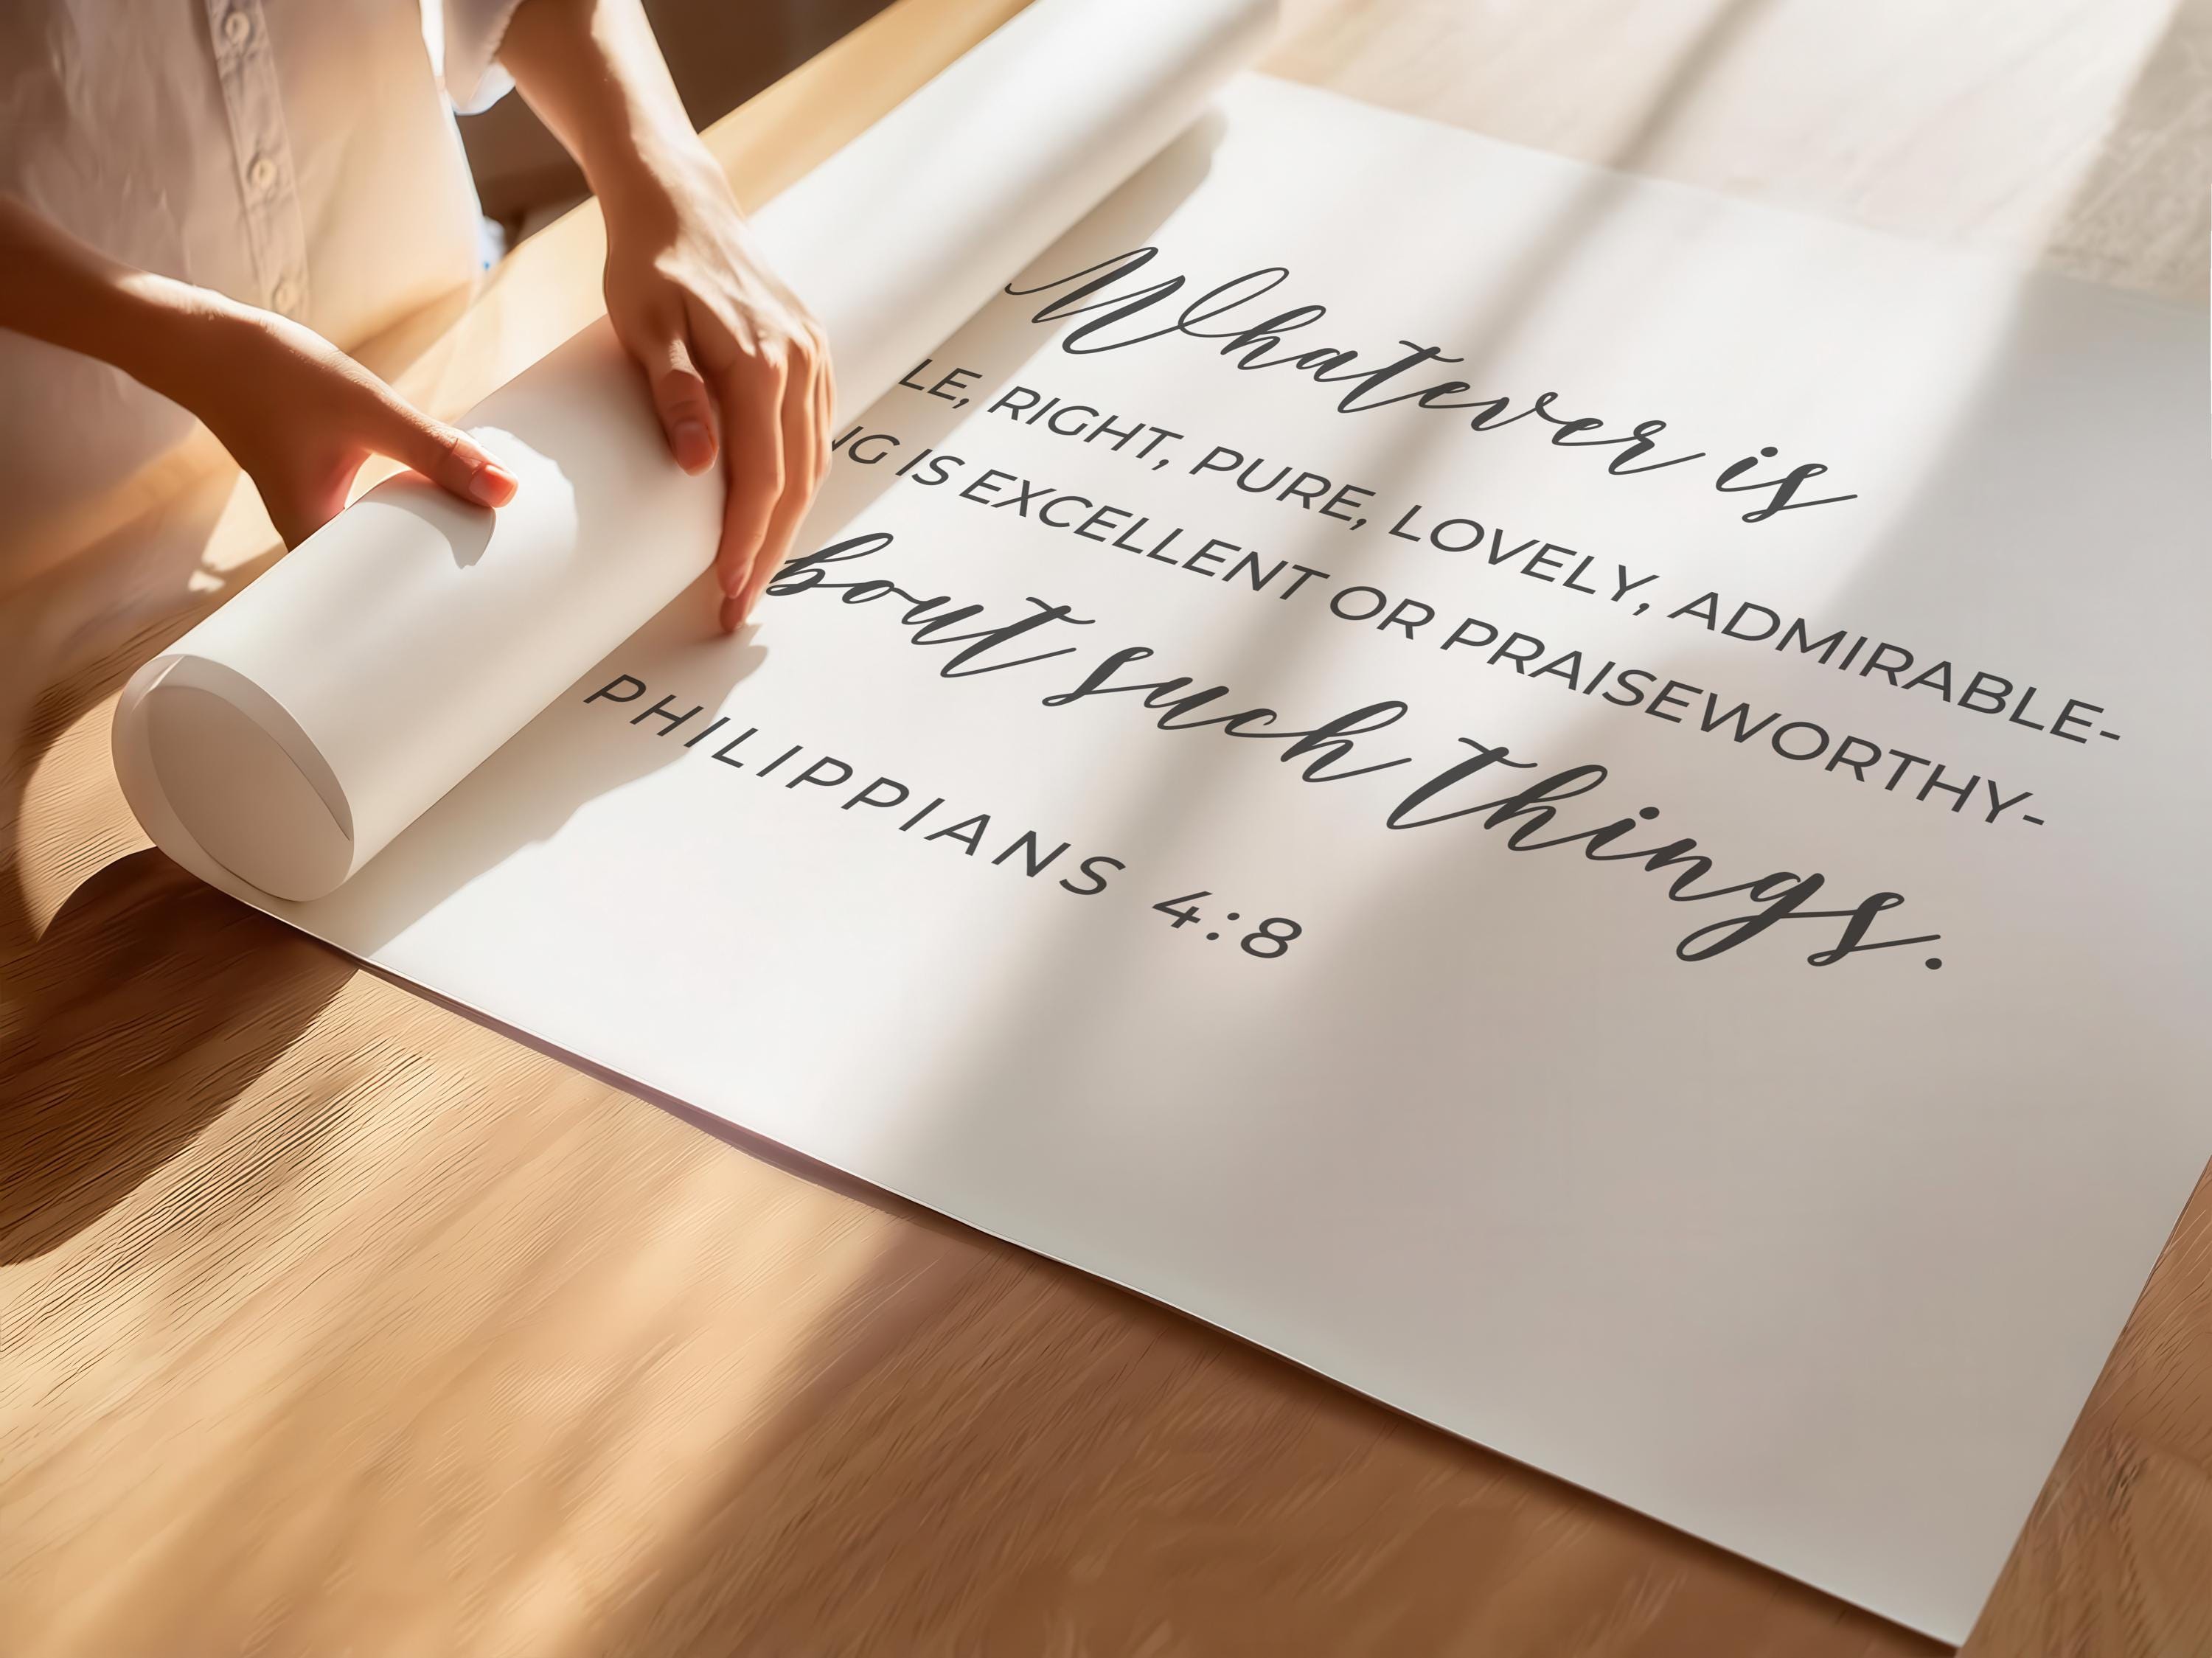 Whatever is
LE, RIGHT, PURE, LOVELY, ADMIRABLE-
NG IS EXCELLENT OR PRAISEWORTHY-
bout such things.
PHILIPPIANS 4:8